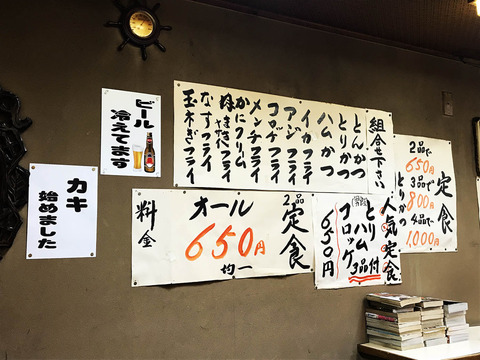 ビール
冷えてます
カキ
始めました
組合せ下さい
とんかつ
とりかつ
ハムかつ
イカフライ
アジフライ
コロッケフライ
メンチフライ
かにクリーム
なすフライ
玉ネギフライ
定食
2品で
650円
3品で
800円
4品で
1,000円
とりかつ
2品
定食
オール
650円
均一
料金
人気定食
とり
ハム
コロッケ
3品付
650円